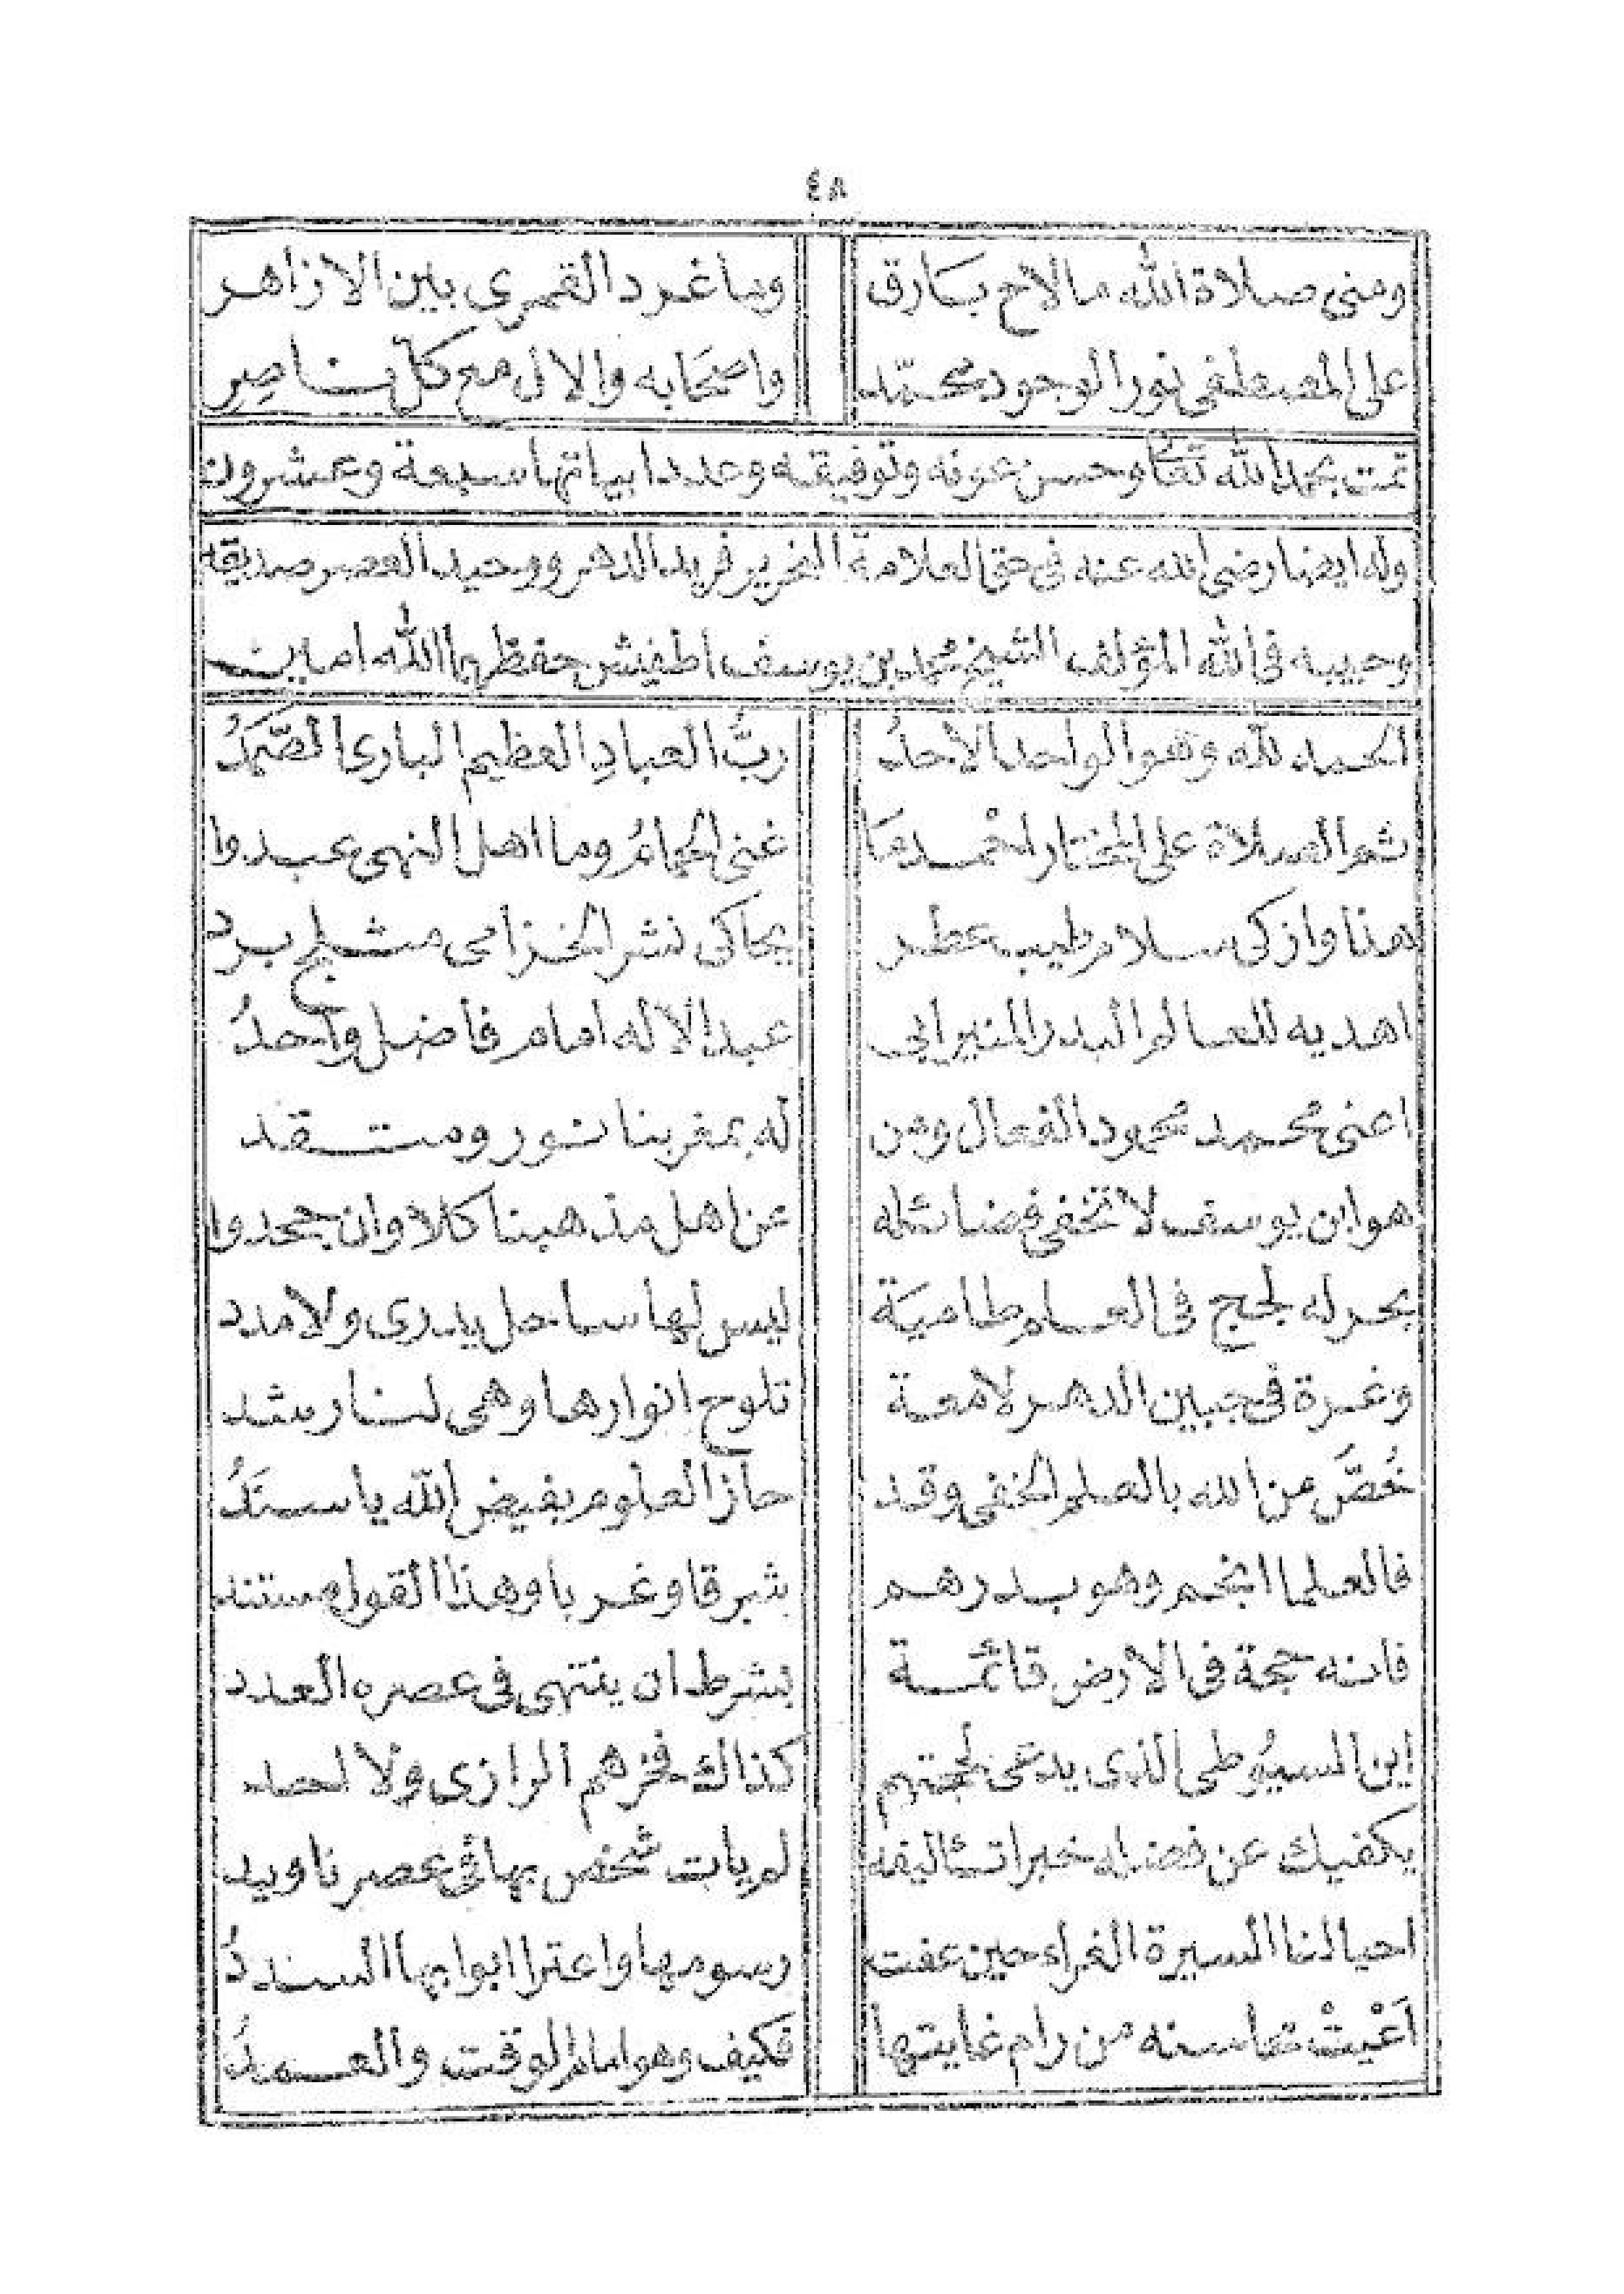 ٤٨
ومني صلاة الله ما لاح بارق وما غرد القمري بين الازاهر
على المصطفى نور الوجود محمّد واصحَابه والال مع كلّ ناصِرِ
تمت بحمد الله تعالى وحسن عونه وتوفيقه وعدد ابياتها سبعة وعشرون
وله ايضا رضى الله عنه فى حق العلامة النحرير فريد الدهر ووحيد العصر صديقه
وحبيبه فى الله المؤلف الشيخ محمد بن يوسف اطفيش حفظهما الله امين
الحمد لله وهو الواحد الاحدُ ربُّ العبادِ العظيم البارى الصّمَدُ
ثم الصلاة على المختار احْمد مَا غنى الحمامُ وما اهل النهى عبدوا
هنا وازكى سلام طيب عطر يحاكى نشر الخزامى مثلج برد
اهديه للعالم البدر المنير ابى عبد الاله امام فاضل واحدُ
اعنى محمد محمود الفعال ومن له بمغربنا نور ومتقد
هو ابن يوسف لا تخفى فضائله عن اهل مذهبنا كلا وان جحدوا
بحر له لجج فى العلم طاميَة ليس لها ساحل يدرى ولا مدد
وغرة فى جبين الدهر لامعة تلوح انوارها وهى لنا رشد
خُصَّ من الله بالعلم الخفى وقد حاز العلوم بفيض الله يا سندُ
فالعلما انجم وهو بدرهم شرقا وغربا وهذا القول مستند
فانه حجة فى الارض قائمة بشرط ان ينتهى فى عصره العدد
اين السيُوطى الذى يدعى لجتهم كذاك فخرهم الرازى ولا احد
يكفيك عن فضله خبرا تئاليفه لم يات شخص بها فى عصرنا ويد
احيا لنا السيرة الغراء حين عفت رسومها واعترا ابوابها السددُ
اَعْيتْ محاسنه من رام غايتها فكيف وهو امام الوقت والعمدُ